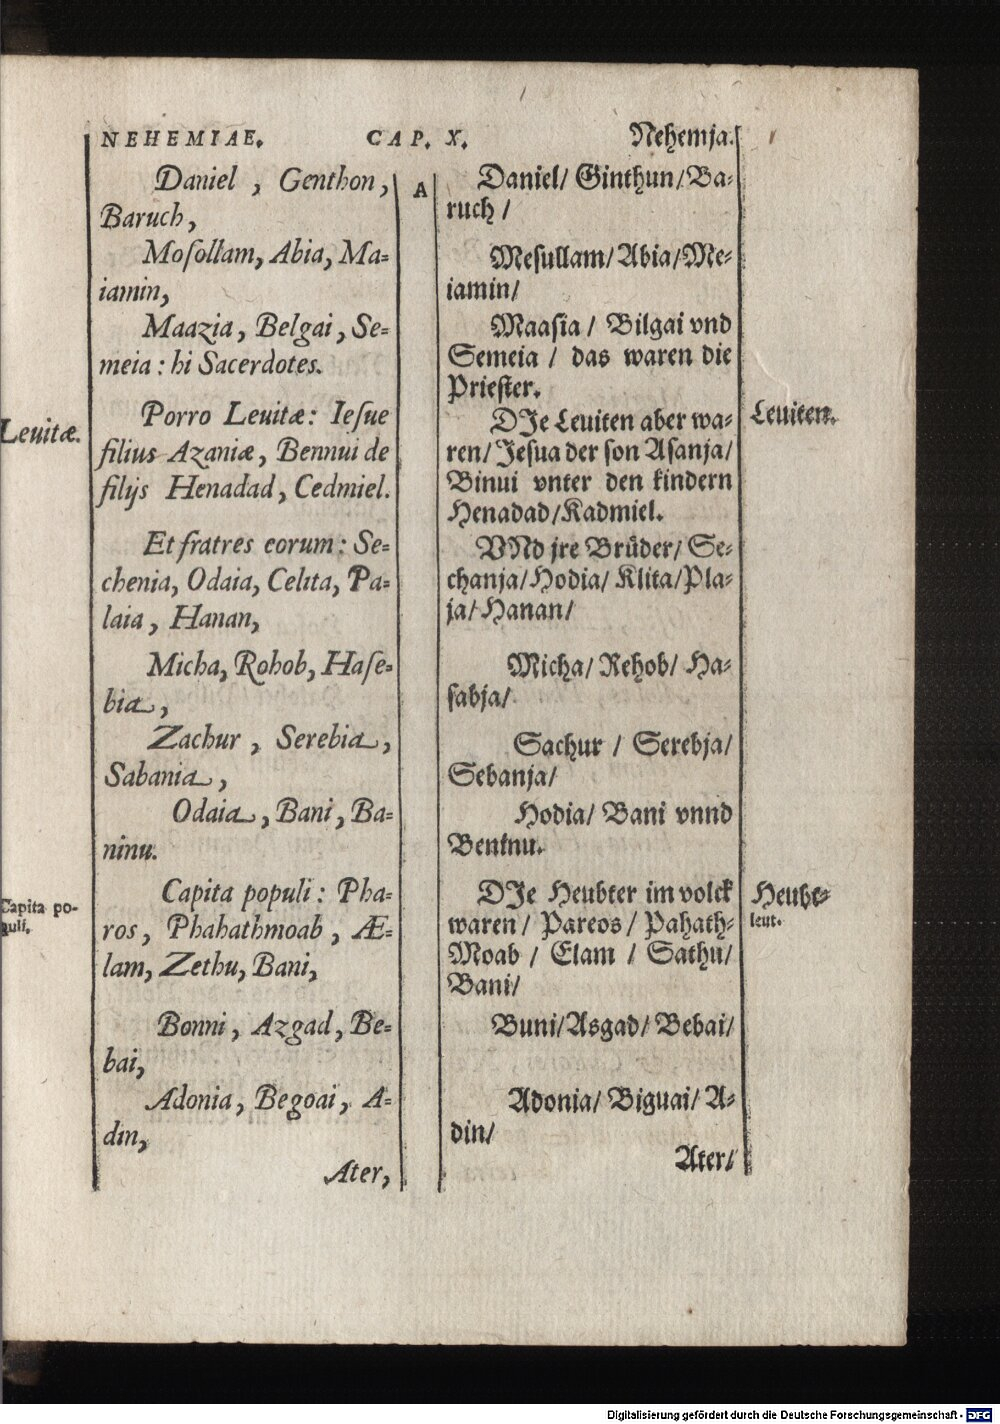 NEHEMIAE. CAP. X. Nehemja.
Daniel, Genthon,
Baruch,
Mosollam, Abia, Ma=
iamin,
Maazia, Belgai, Se=
meia: hi Sacerdotes.
Leuitæ.
Porro Leuitæ: Iesue
filius Azaniæ, Bennui de
filijs Henadad, Cedmiel.
Et fratres eorum: Se=
chenia, Odaia, Celita, Pa=
laia, Hanan,
Micha, Rohob, Hase=
bia,
Zachur, Serebia,
Sabania,
Odaia, Bani, Ba=
ninu.
Capita po-
puli.
Capita populi: Pha=
ros, Phahathmoab, Æ=
lam, Zethu, Bani,
Bonni, Azgad, Be=
bai,
Adonia, Begoai, A=
din,
Ater,
A
Daniel/ Ginthun/ Ba=
ruch/
Mesullam/ Abia/ Me=
iamin/
Maasia/ Bilgai vnd
Semeia/ das waren die
Priester.
DJe Leuiten aber wa=
ren/ Jesua der son Asanja/
Binui vnter den kindern
Henadad/ Kadmiel.
Leuiten.
VNd jre Brüder/ Se=
chanja/ Hodia/ Klita/ Pla=
ja/ Hanan/
Micha/ Rehob/ Ha=
sabja/
Sachur/ Serebja/
Sebanja/
Hodia/ Bani vnnd
Beninu.
DJe Heubter im volck
waren/ Pareos/ Pahath=
Moab/ Elam/ Sathu/
Bani/
Heubt-
leut.
Buni/ Asgad/ Bebai/
Adonia/ Biguai/ A=
din/
Ater/
Digitalisierung gefördert durch die Deutsche Forschungsgemeinschaft - DFG